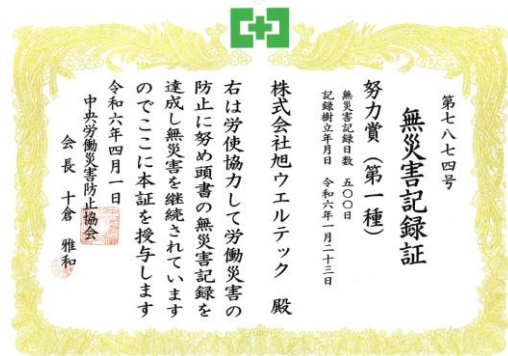 第七八七四号
無災害記録証
努力賞（第一種）
無災害記録日数　五〇〇日
記録樹立年月日　令和六年一月二十三日
株式会社旭ウエルテック　殿
右は労使協力して労働災害の
防止に努め頭書の無災害記録を
達成し無災害を継続されています
のでここに本証を授与します
令和六年四月一日
中央労働災害防止協会
会長　十倉　雅和